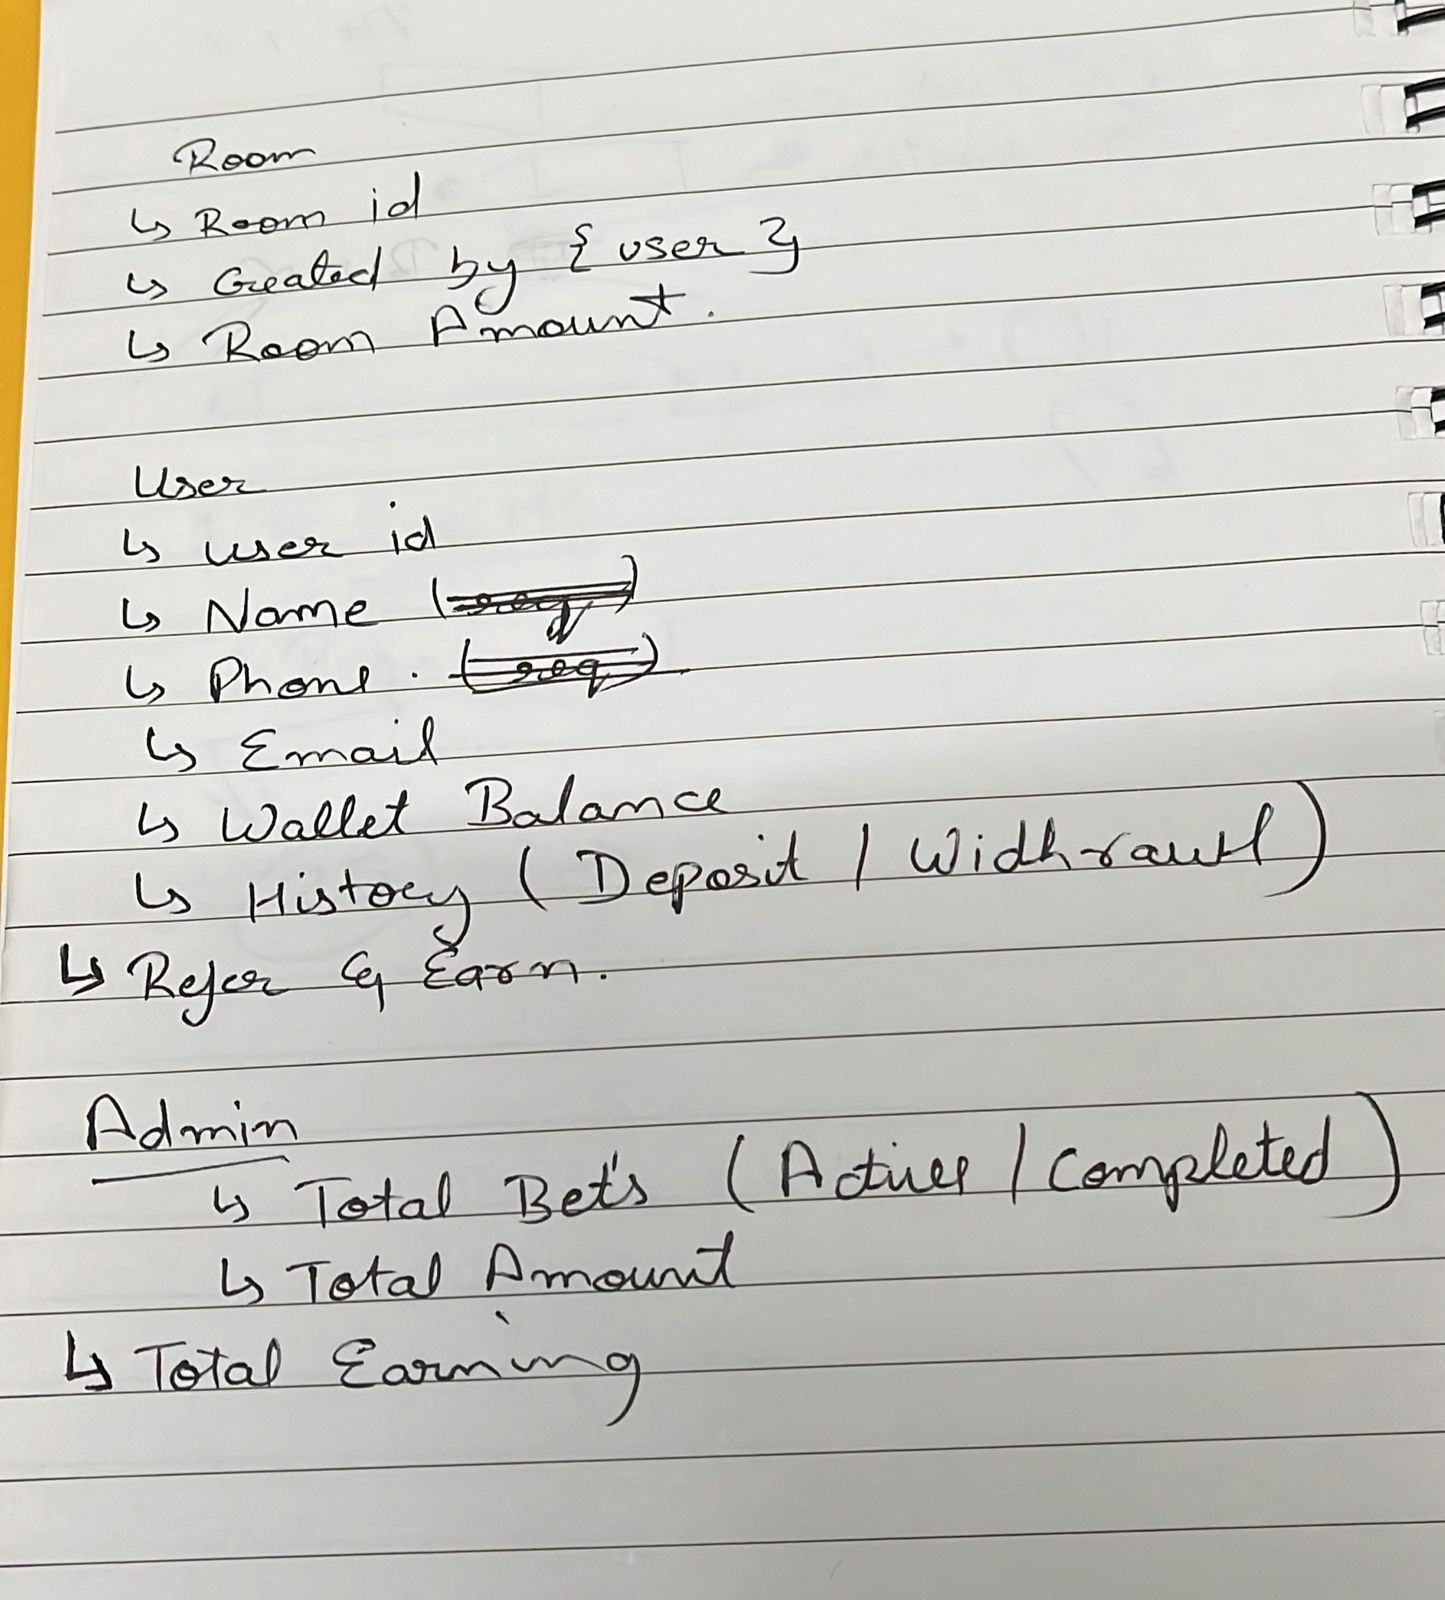 Room
↳ Room id
↳ Created by { user }
↳ Room Amount.
User
↳ user id
↳ Name (req)
↳ Phone. (req)
↳ Email
↳ Wallet Balance
↳ History ( Deposit / Widhrawl )
↳ Refer & Earn.
Admin
↳ Total Bet's ( Active / Completed )
↳ Total Amount
↳ Total Earning